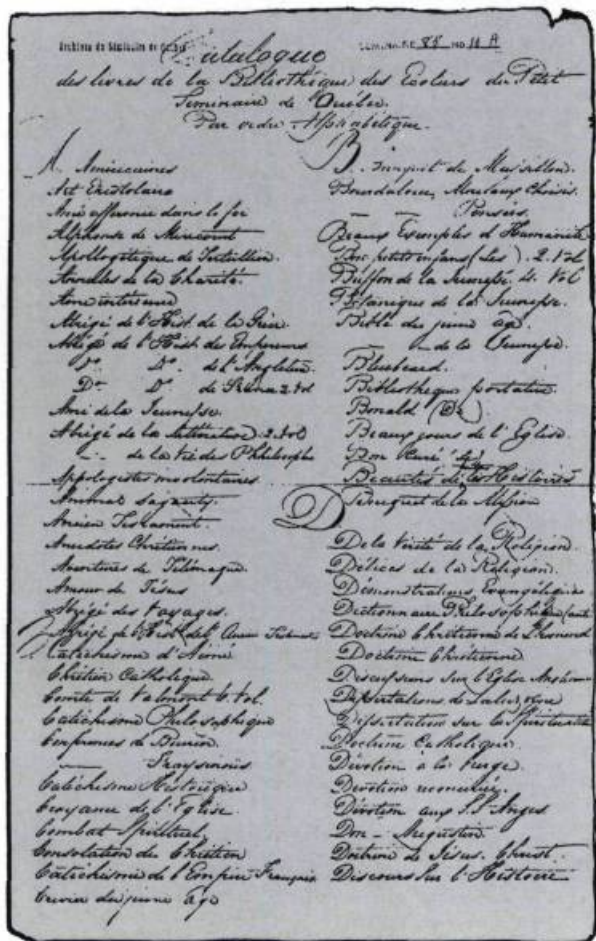 Archives du Séminaire de Québec
SEMINAIRE 85 NO 14 A
Catalogue
des livres de la Bibliothèque des Ecoliers du Petit
Seminaire de Québec.
Par ordre Alphabétique.
A. Americaines
Art Epistolaire
Ame affermie dans la foi
Alphonse de Mirecourt
Apollogetique de Tertullien.
Annalles de la Charité.
Ame interieure
Abrigé de l'Hist. de la Grèce.
Abrigé de l'Hist. des Empereurs
Do. Do. de l'Angleterre.
Do. Do. de 2 vol
Ami de la Jeunesse.
Abrigé de la Litterature 2 vol
-- de la vie des Philosophes
Appologistes involontaires.
Animal sagacity.
Ancien Testament.
Anecdotes Chrétiennes.
Aventures de Télémaque.
Amour de Jésus
Abrigé des Voyages.
Abrigé de l'Hist. de l'Ancien
Catéchisme d'Aimé
Chrétien Catholique
Comte de Valmont 6 Vol.
Catéchisme Philosophique
Conferences de
— Frayssinous
Catéchisme Historique
Croyance de l'Eglise.
Combat Spirituel,
Consolation du Chrétien
Catéchisme de l'Empire Français
du jeune age
B. Bouquet de Massillon.
Bourdaloue, Choisis.
— — Pensées.
Beaux Exemples d'Humanité
Bons petits enfans (Les). 2. Vol
Buffon de la Jeunesse. 4. Vol
Botanique de la Jeunesse.
Bible du jeune age.
— de la Jeunesse.
Bluebeard.
Bibliotheque portative.
Bonald (De)
Beaux jours de l'Eglise.
Bon Curé
Beautés de les Histoires
Bouquet de la Mission
D
De la Vérité de la Religion.
Délices de la Religion.
Démonstrations Evangéliques
Dictionnaire Philosophique
Doctrine Chrétienne de Lhomond
Doctrine Chrétienne
Discussions sur l'Eglise
Dissertations de
Dissertation sur la
Doctrine Catholique.
Dévotion à la Vierge.
Dévotion
Dévotion aux S.S. Anges
Don - Augustin.
Doctrine de Jésus-Christ.
Discours sur l'Histoire